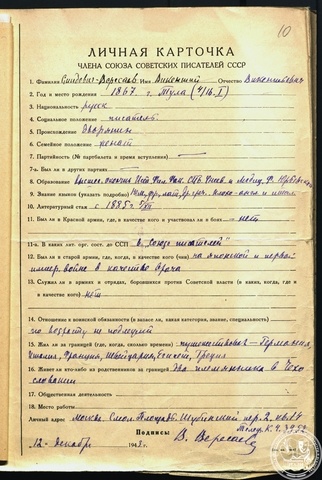 10
ЛИЧНАЯ КАРТОЧКА
ЧЛЕНА СОЮЗА СОВЕТСКИХ ПИСАТЕЛЕЙ СССР
1. Фамилия Смидович-Вересаев Имя Викентий Отчество Викентьевич
2. Год и место рождения 1867 г. Тула (4/16.I)
3. Национальность русск
4. Социальное положение писатель
5. Происхождение Дворянин
6. Семейное положение женат
7. Партийность (№ партбилета и время вступления) —
7-а. Был ли в других партиях
8. Образование высшее, окончил Ист. Фил. Фак. СПБ. и Медиц. Ф. Юрьевск
9. Знание языков (указать подробно) Нем, фр, лат, др. гр. плохо — англ и итал
10. Литературный стаж с 1885 г.
11. Был ли в Красной армии, где, когда, в качестве кого и участвовал ли в боях — нет
11-а. В каких лит. орг. сост. до ССП В „Союзе писателей“
12. Был ли в старой армии, где, когда, в качестве кого (чин) на японской и первой
импер. войне в качестве врача
13. Служил ли в армиях и отрядах, боровшихся против Советской власти (в каких, когда, где и
в качестве кого) нет
14. Отношение к воинской обязанности (в запасе ли, какая категория, звание, специальность)
по возрасту не подлежит
15. Был ли за границей (где, когда, сколько времени) путешествовал — Германия,
Италия, Франция, Швейцария, Египет, Греция
16. Живет ли кто-либо из родственников за границей Два племянника в Чехо
словакии
17. Общественная деятельность
18. Место работы
Личный адрес Москва Смол. Площадь, Шубинский пер. 2, кв. 14
Телеф. К. 4.32.52
Подпись В. Вересаев
12 декабря 1943 г.